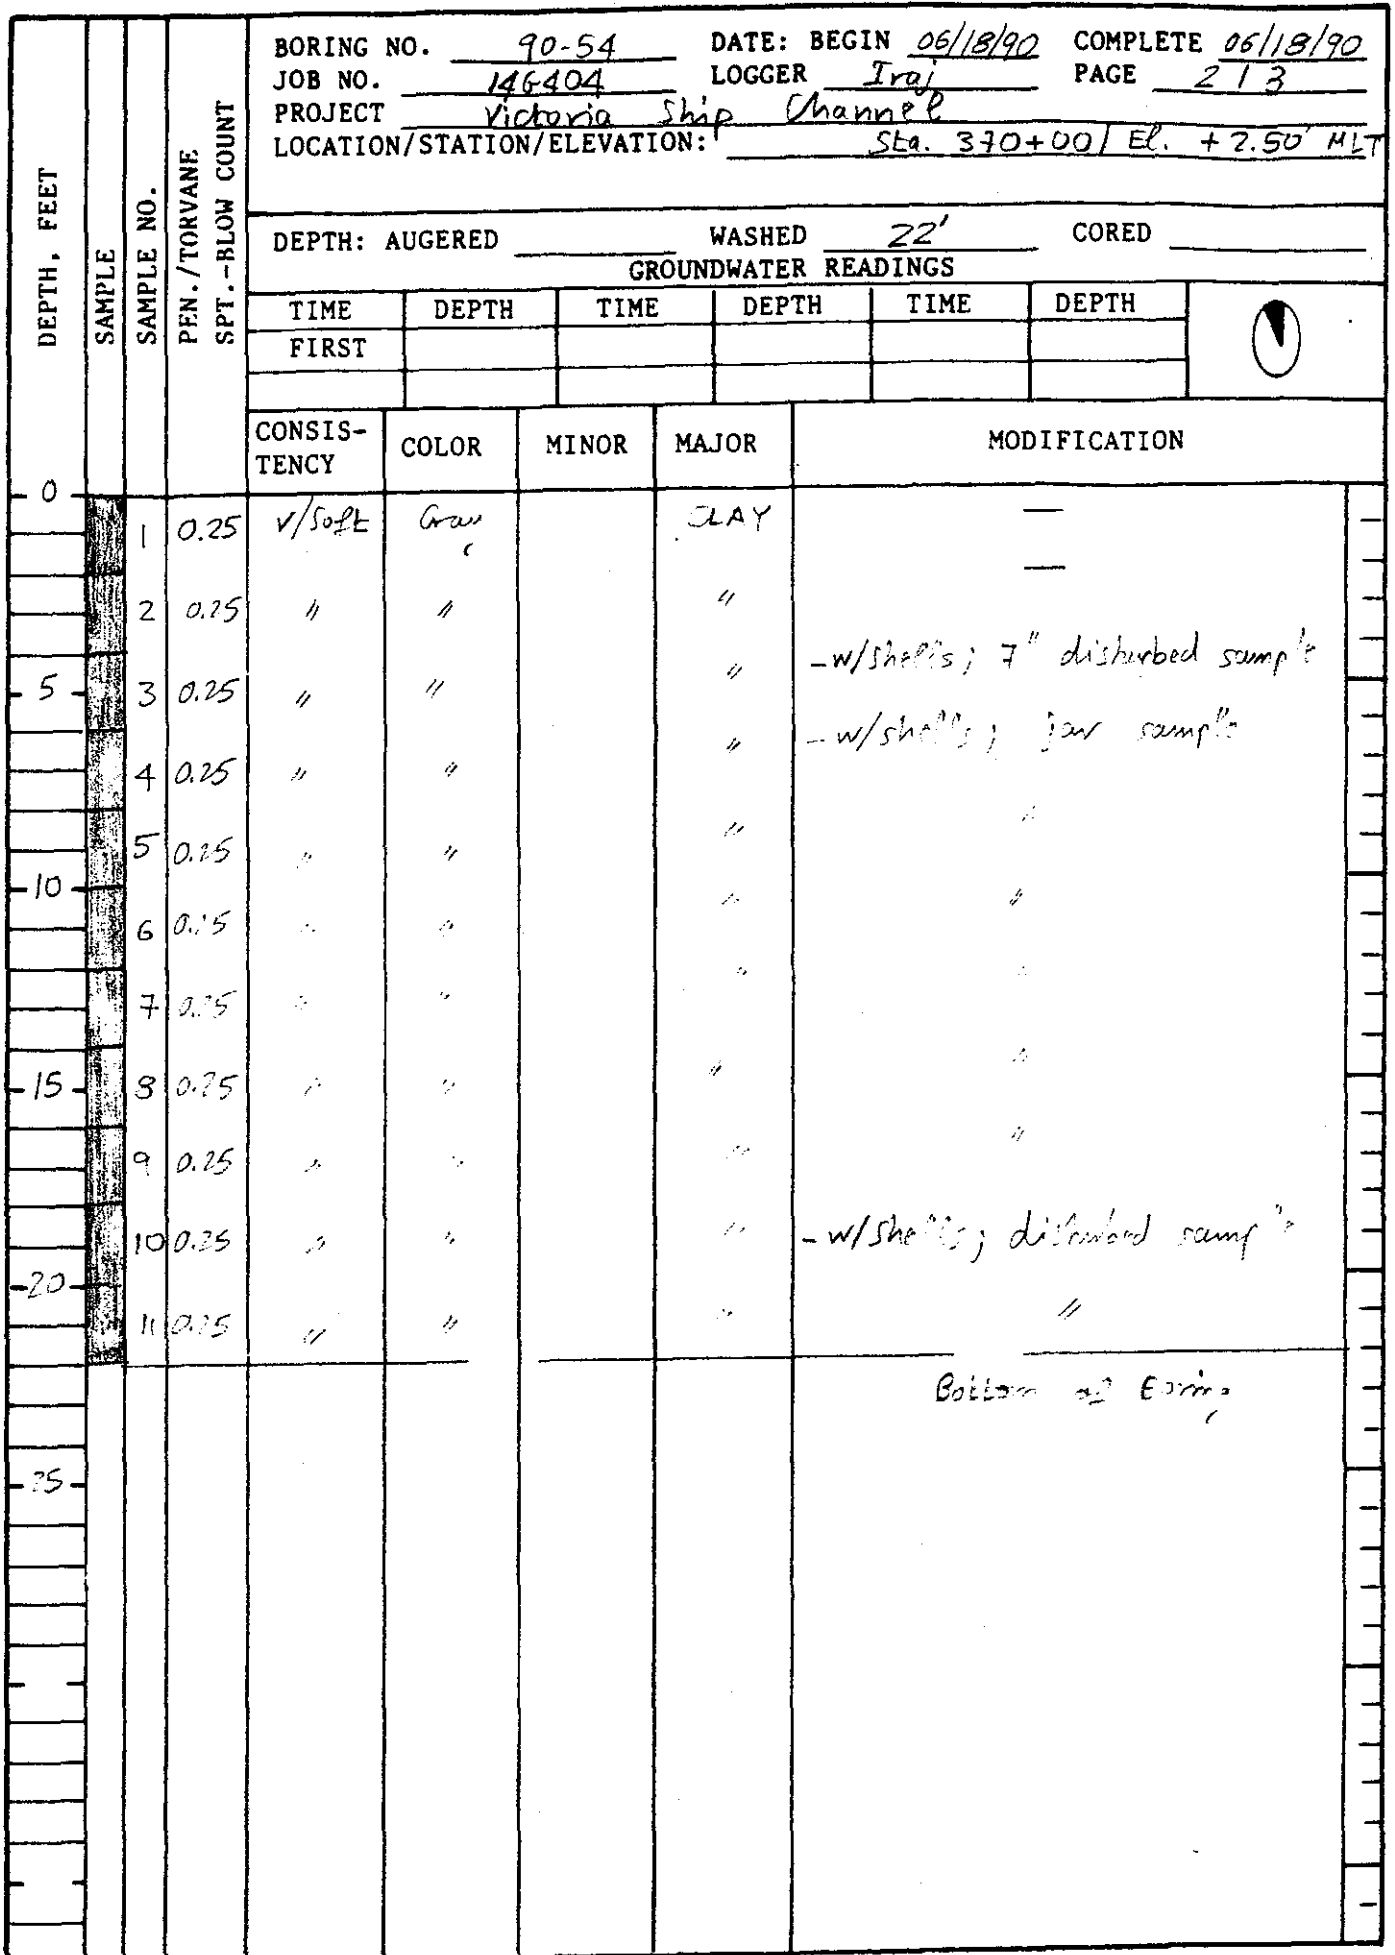 BORING NO. 90-54 DATE: BEGIN 06/18/90 COMPLETE 06/18/90
JOB NO. 146404 LOGGER Iraj PAGE 2 / 3
PROJECT Victoria Ship Channel
LOCATION/STATION/ELEVATION: Sta. 370+00 / El. +2.50' MLT
DEPTH: AUGERED WASHED 22' CORED
GROUNDWATER READINGS
TIME DEPTH TIME DEPTH TIME DEPTH
FIRST
DEPTH, FEET
SAMPLE
SAMPLE NO.
PEN./TORVANE
SPT.-BLOW COUNT
CONSIS-TENCY COLOR MINOR MAJOR MODIFICATION
0
1 0.25 V/Soft Gray CLAY —
—
2 0.25 " " "
5 3 0.25 " " " -w/shells; 7" disturbed sample
4 0.25 " " " -w/shells; jar sample
5 0.25 " " " "
10
6 0.25 " " " "
7 0.25 " " " "
15 8 0.25 " " " "
9 0.25 " " " "
10 0.25 " " " -w/shells; disturbed sample
20
11 0.25 " " " "
Bottom of Boring
25